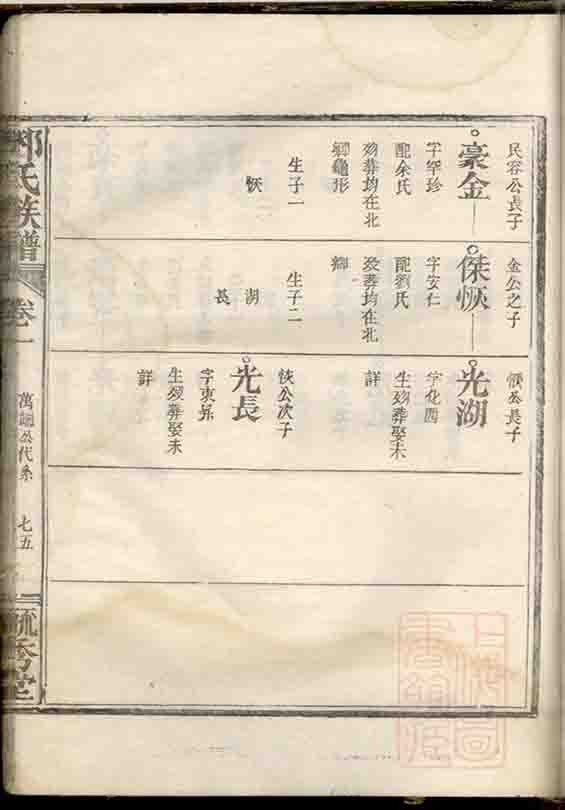 民容公長子
豪金
字罕珍
配余氏
歿葬均在北
鄉龜形
生子一
恢
金公之子
傑恢
字安仁
配劉氏
歿葬均在北
鄉
生子二
湖
長
恢公長子
光湖
字化西
生歿葬娶未
詳
恢公次子
光長
字東昇
生歿葬娶未
詳
氏族譜
卷一
萬
公代系
七五
毓秀堂